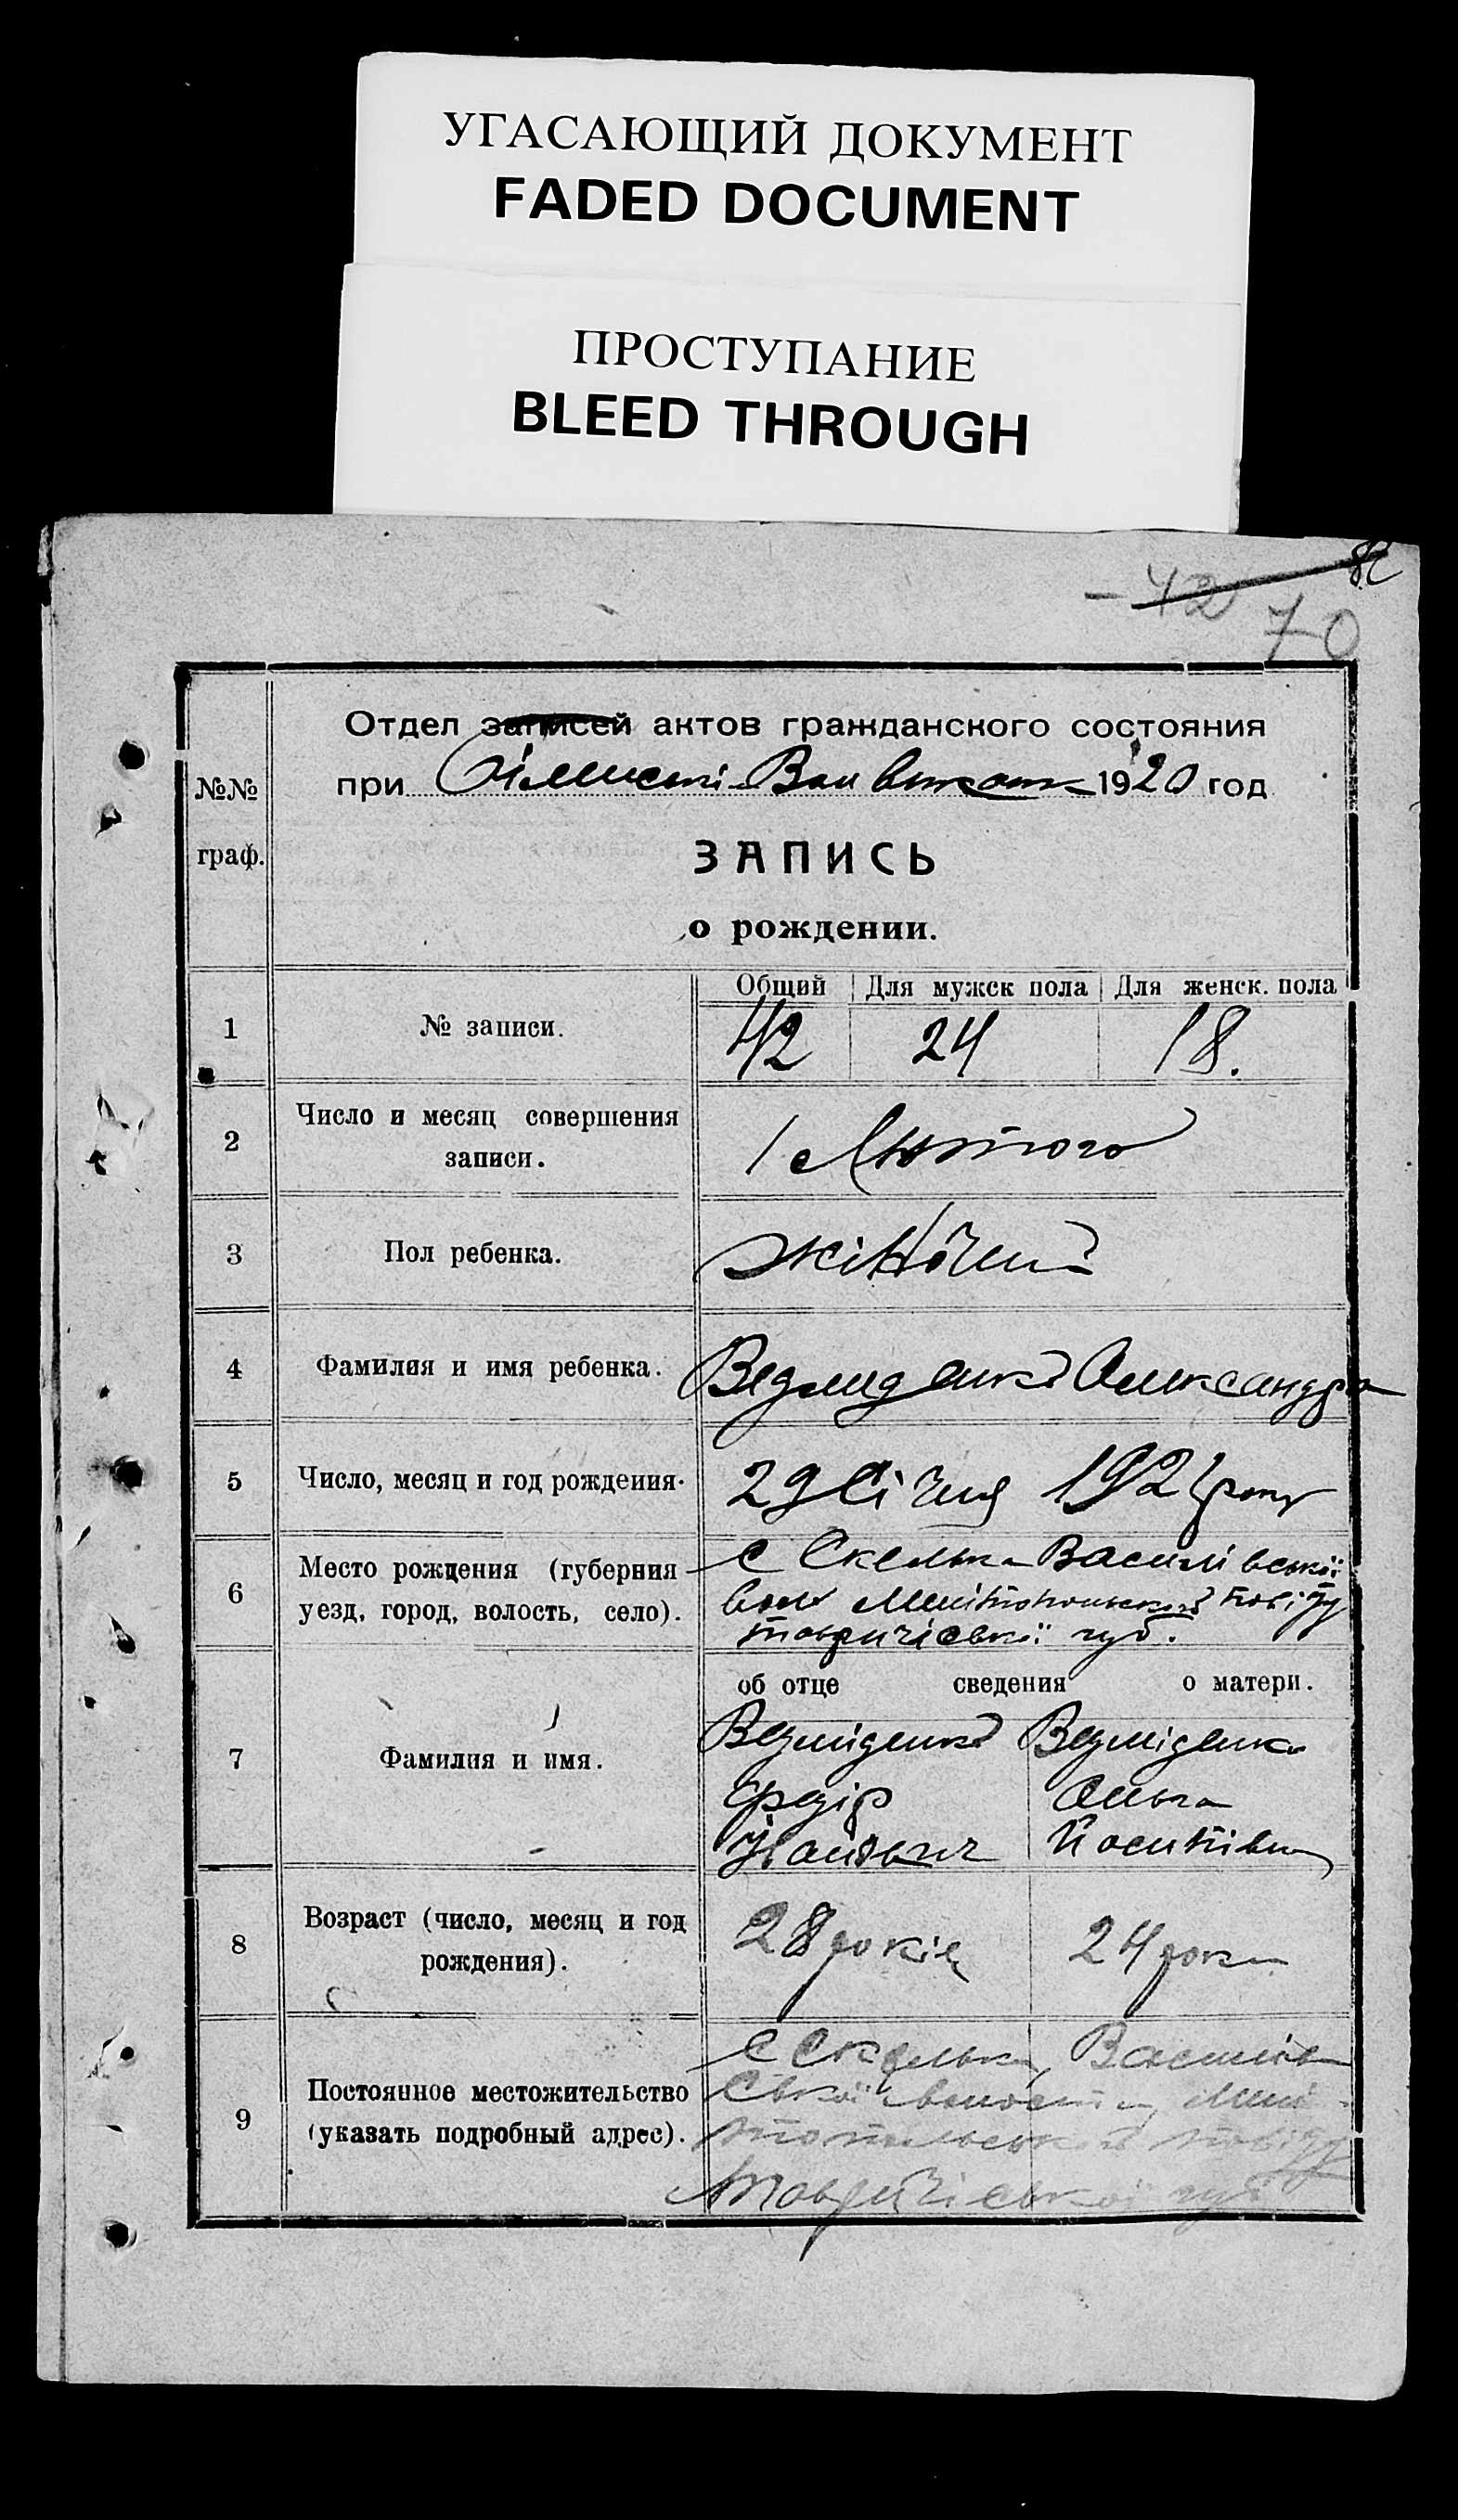 УГАСАЮЩИЙ ДОКУМЕНТ
FADED DOCUMENT
ПРОСТУПАНИЕ
BLEED THROUGH
42
70
№№
граф.
Отдел записей актов гражданского состояния
при 1920 год
ЗАПИСЬ
о рождении.
Общий Для мужск пола Для женск. пола
1 № записи. 42 24 18.
2 Число и месяц совершения
записи.
1 Лютого
3 Пол ребенка. жіночий
4 Фамилия и имя ребенка. Ведмиденко Олександра
5 Число, месяц и год рождения. 29 Січня 192 року
6 Место рождения (губерния
уезд, город, волость, село).
с Скелька Василівської
вол Мелітопольского повіту
таврическої губ.
об отце сведения о матери.
7 Фамилия и имя.
Ведміденко Ведміденко
Федір Ольга
Йосипівна
8 Возраст (число, месяц и год
рождения).
28 років 24 роки
9 Постоянное местожительство
(указать подробный адрес).
с Скелька, Василів
ської волости, Мелі
топольского повіту
Таврічіської губ